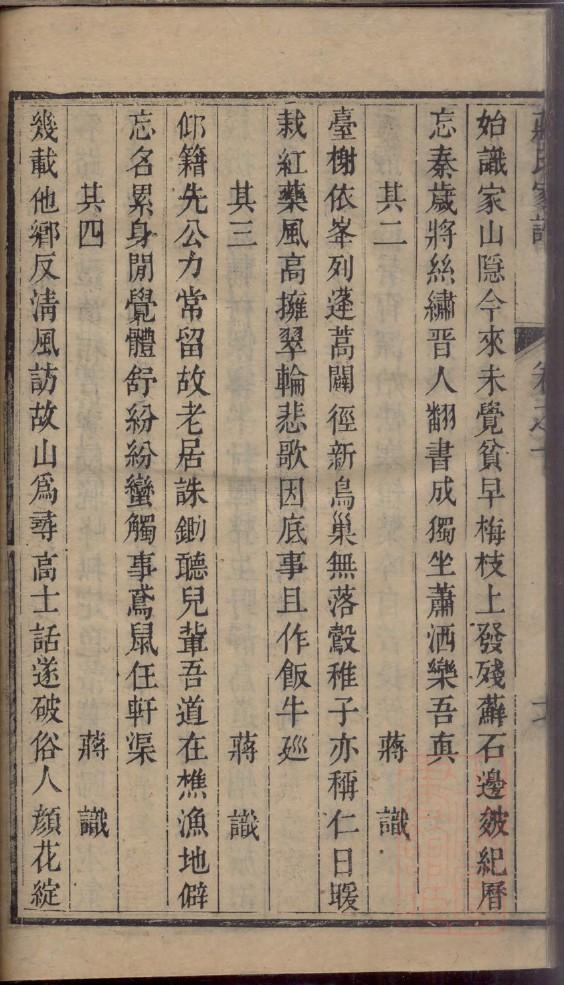 蔣氏家譜
始識家山隱今來未覺貧早梅枝上發殘蘚石邊皴紀曆
忘秦歲將絲繡晋人翻書成獨坐蕭洒樂吾眞
其二 蔣識
臺榭依峯列蓬蒿闢徑新鳥巢無落鷇稚子亦稱仁日暖
栽紅藥風高擁翠輪悲歌因底事且作飯牛廵
其三 蔣識
仰籍先公力常留故老居誅鋤聽兒軰吾道在樵漁地僻
忘名累身閒覺體舒紛紛蠻觸事鳶鼠任軒渠
其四 蔣識
幾載他鄉反清風訪故山爲尋高士話遂破俗人顏花綻